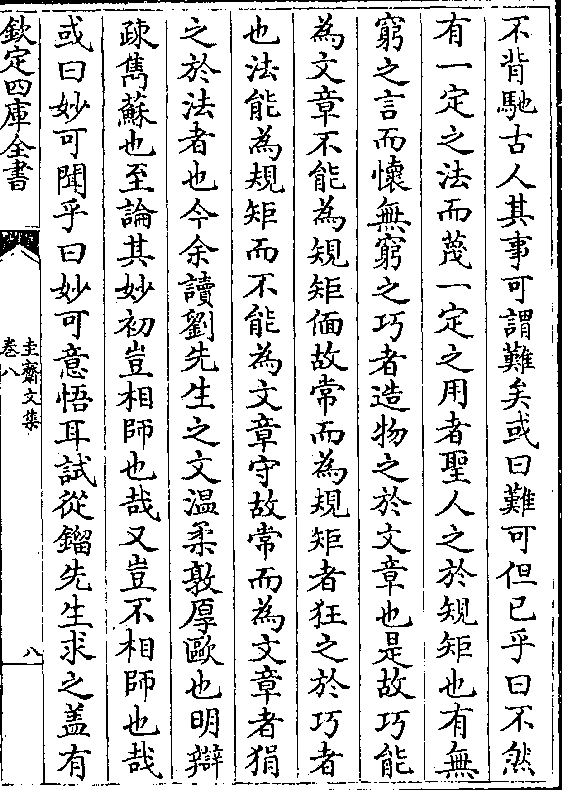 不背馳古人其事可謂難矣或曰難可但已乎曰不然
有一定之法而蔑一定之用者聖人之於規矩也有無
窮之言而懷無窮之巧者造物之於文章也是故巧能
為文章不能為規矩偭故常而為規矩者狂之於巧者
也法能為規矩而不能為文章守故常而為文章者狷
之於法者也今余讀劉先生之文温柔敦厚歐也明辯
疎雋蘇也至論其妙初豈相師也哉又豈不相師也哉
或曰妙可聞乎曰妙可意悟耳試從鎦先生求之盖有
欽定四庫全書
圭齋文集
卷八
八